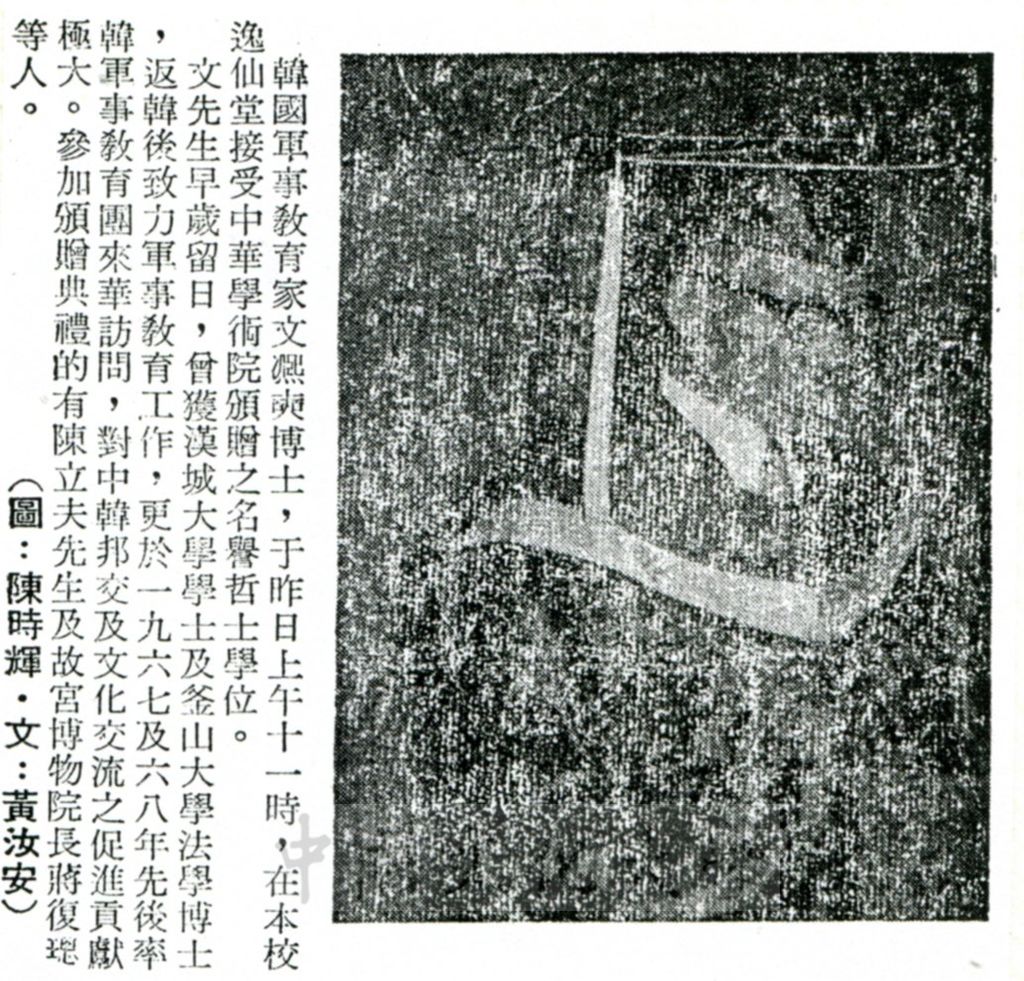 韓國軍事教育家文熈奭博士，于昨日上午十一時，在本校
逸仙堂接受中華學術院頒贈之名譽哲士學位。
文先生早歲留日，曾獲漢城大學學士及釜山大學法學博士
，返韓後致力軍事教育工作，更於一九六七及六八年先後率
韓軍事教育團來華訪問，對中韓邦交及文化交流之促進貢獻
極大。參加頒贈典禮的有陳立夫先生及故宮博物院長蔣復璁
等人。
（圖：陳時輝・文：黃汝安）